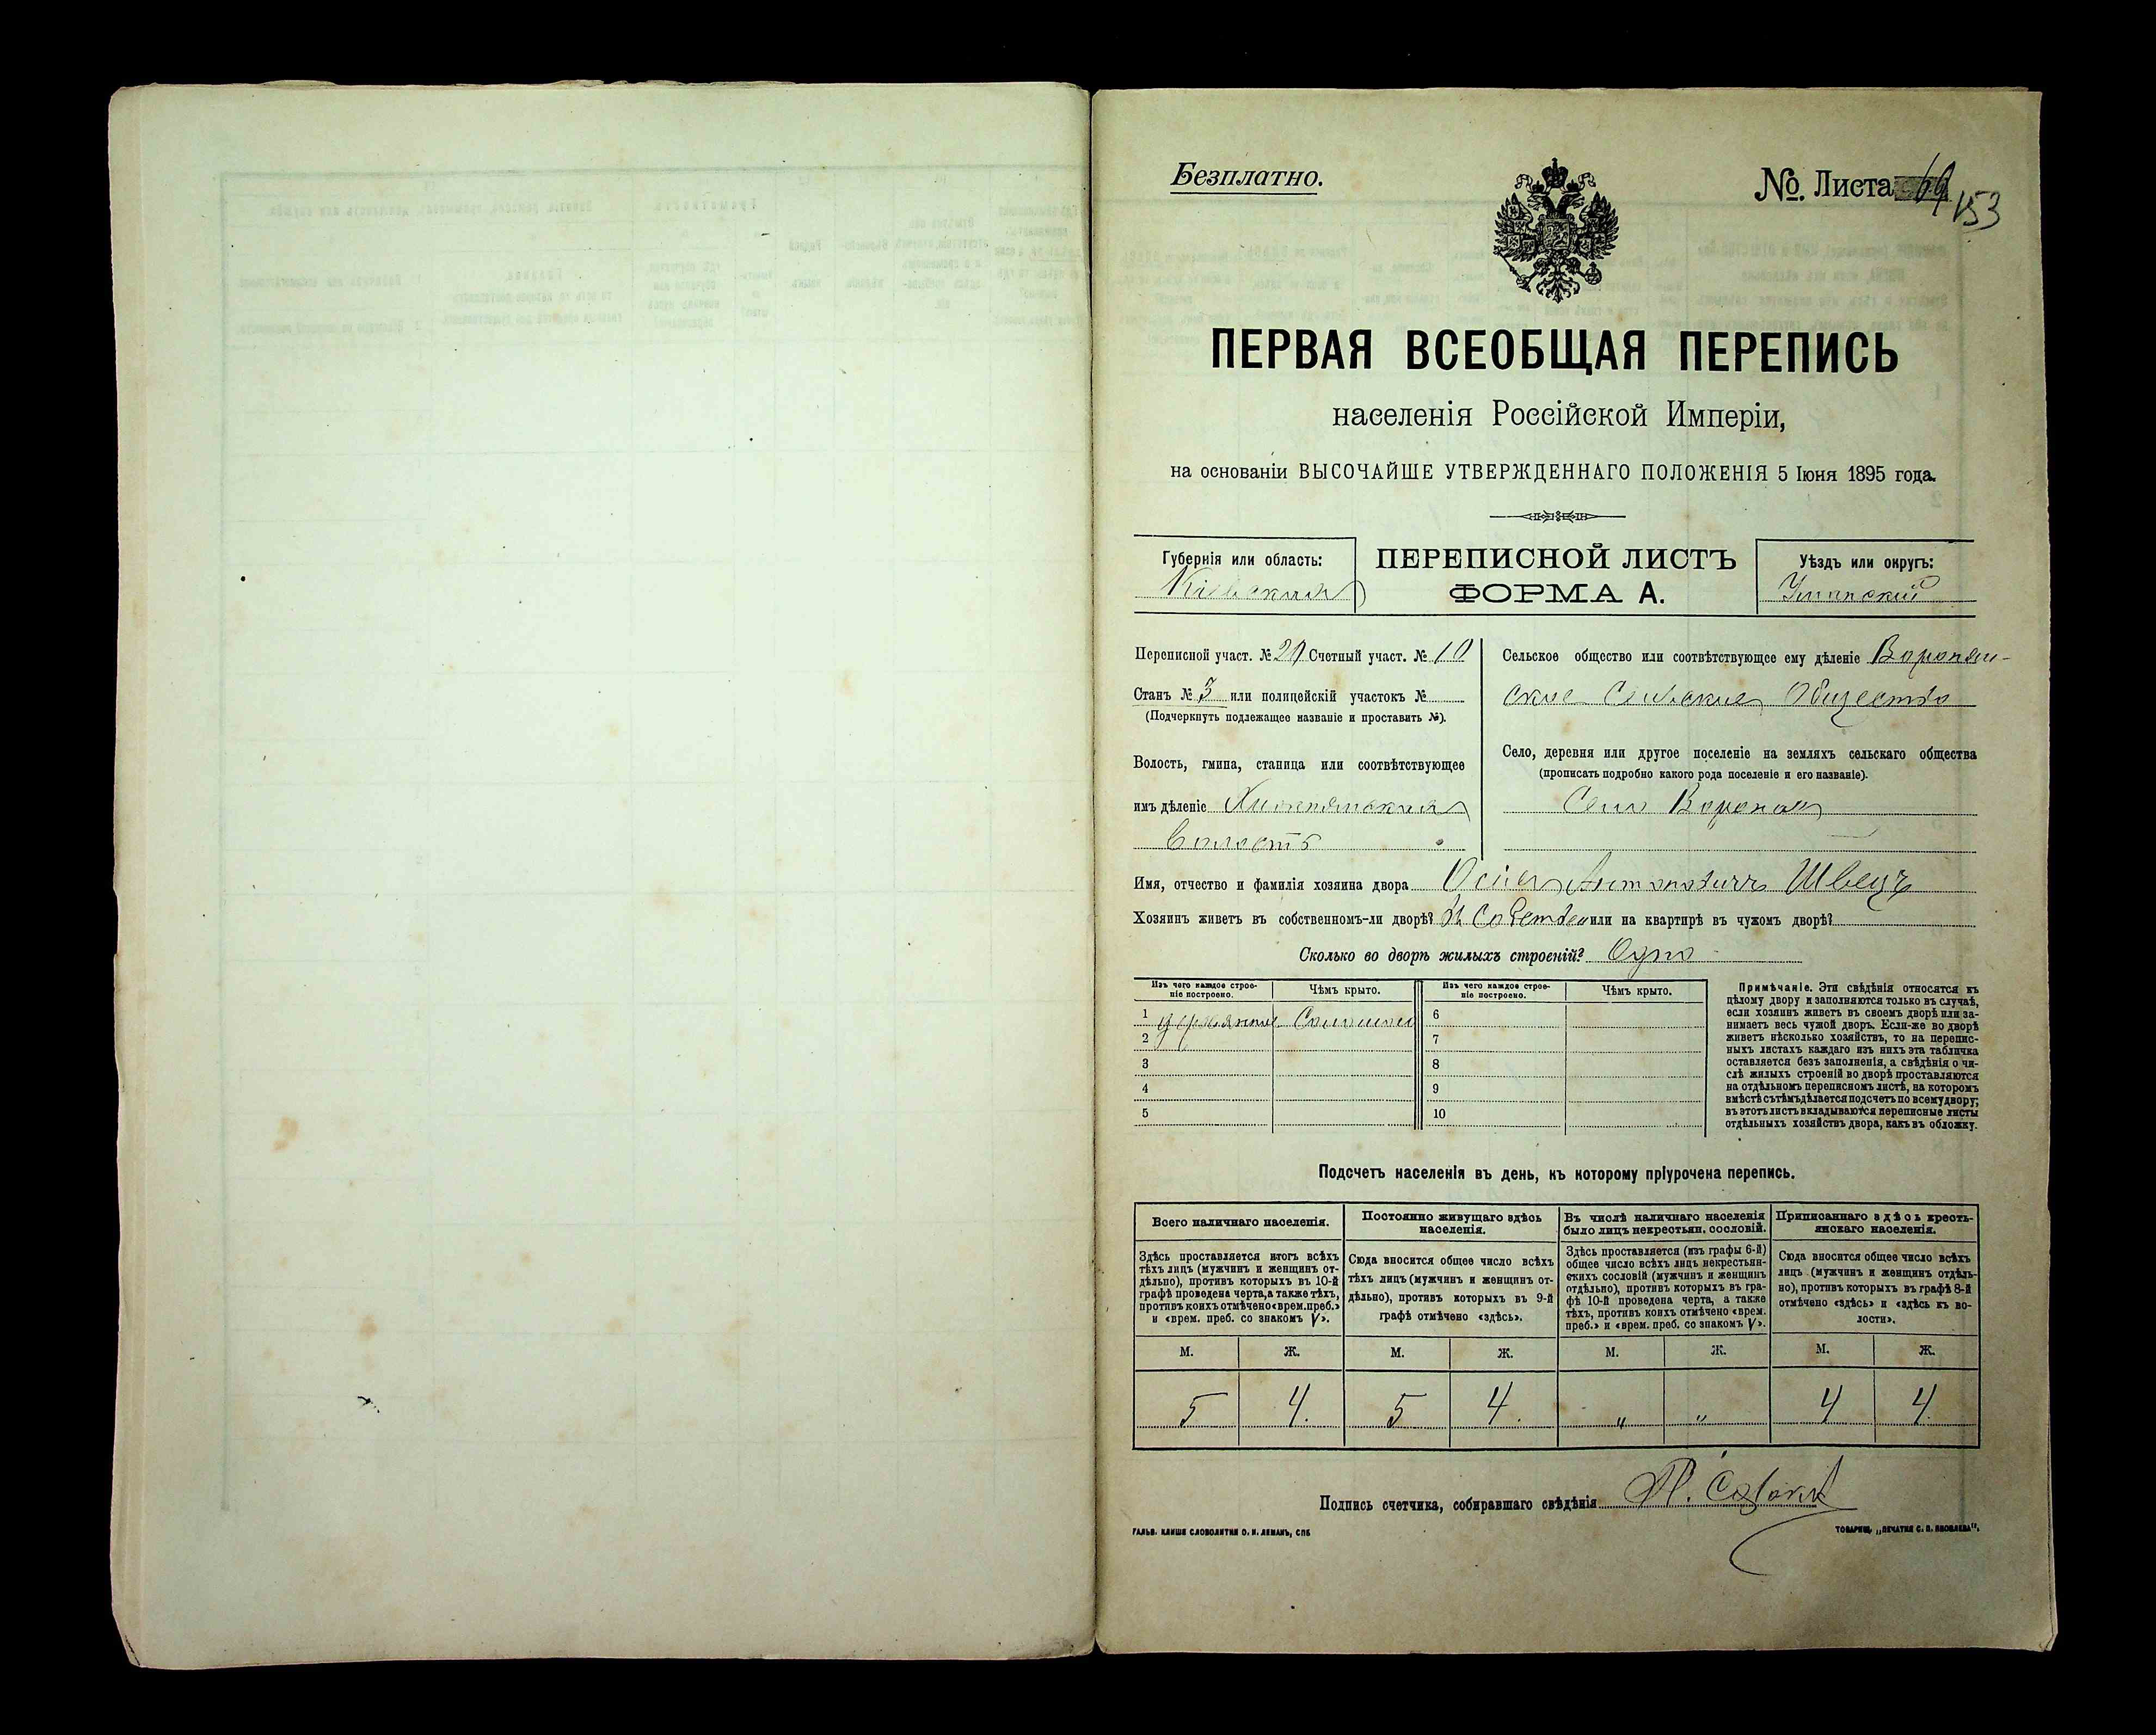 Безплатно.
№ Листа 69
153
ПЕРВАЯ ВСЕОБЩАЯ ПЕРЕПИСЬ
населенія Россійской Имперіи,
на основаніи ВЫСОЧАЙШЕ УТВЕРЖДЕННАГО ПОЛОЖЕНІЯ 5 Іюня 1895 года.
Губернія или область:
Кіевская
ПЕРЕПИСНОЙ ЛИСТЪ
ФОРМА А.
Уѣздъ или округъ:
Уманскій
Переписной участ. № Счетный участ. № 10
Станъ № 3 или полицейскій участокъ №
(Подчеркнуть подлежащее названіе и проставить №).
Волость, гмина, станица или соотвѣтствующее
имъ дѣленіе
Волость
Сельское общество или соотвѣтствующее ему дѣленіе
ское Сельское Общество
Село, деревня или другое поселеніе на земляхъ сельскаго общества
(прописать подробно какого рода поселеніе и его названіе).
Село
Имя, отчество и фамилія хозяина двора Швецъ
Хозяинъ живетъ въ собственномъ-ли дворѣ? или на квартирѣ въ чужомъ дворѣ?
Сколько во дворѣ жилыхъ строеній? Одно
Изъ чего каждое строе-
ніе построено.
Чѣмъ крыто.
Изъ чего каждое строе-
ніе построено.
Чѣмъ крыто.
1 6
2 7
3 8
4 9
5 10
Примѣчаніе. Эти свѣдѣнія относятся къ
цѣлому двору и заполняются только въ случаѣ,
если хозяинъ живетъ въ своемъ дворѣ или за-
нимаетъ весь чужой дворъ. Если-же во дворѣ
живетъ нѣсколько хозяйствъ, то на перепис-
ныхъ листахъ каждаго изъ нихъ эта табличка
оставляется безъ заполненія, а свѣдѣнія о чи-
слѣ жилыхъ строеній во дворѣ проставляются
на отдѣльномъ переписномъ листѣ, на которомъ
вмѣстѣ съ тѣмъ дѣлается подсчетъ по всему двору;
въ этотъ листъ вкладываются переписные листы
отдѣльныхъ хозяйствъ двора, какъ въ обложку.
Подсчетъ населенія въ день, къ которому пріурочена перепись.
Всего наличнаго населенія.
Здѣсь проставляется итогъ всѣхъ
тѣхъ лицъ (мужчинъ и женщинъ от-
дѣльно), противъ которыхъ въ 10-й
графѣ проведена черта, а также тѣхъ,
противъ коихъ отмѣчено «врем. преб.»
и «врем. преб. со знакомъ V».
Постоянно живущаго здѣсь
населенія.
Сюда вносится общее число всѣхъ
тѣхъ лицъ (мужчинъ и женщинъ от-
дѣльно), противъ которыхъ въ 9-й
графѣ отмѣчено «здѣсь».
Въ числѣ наличнаго населенія
было лицъ некрестьян. сословій.
Здѣсь проставляется (изъ графы 6-й)
общее число всѣхъ лицъ некрестьян-
скихъ сословій (мужчинъ и женщинъ
отдѣльно), противъ которыхъ въ гра-
фѣ 10-й проведена черта, а также
тѣхъ, противъ коихъ отмѣчено «врем.
преб.» и «врем. преб. со знакомъ V».
Приписаннаго здѣсь кресть-
янскаго населенія.
Сюда вносится общее число всѣхъ
лицъ (мужчинъ и женщинъ отдѣль-
но), противъ которыхъ въ графѣ 8-й
отмѣчено «здѣсь» и «здѣсь къ во-
лости».
М. Ж. М. Ж. М. Ж. М. Ж.
5 4. 5 4. " " 4 4
Подпись счетчика, собиравшаго свѣдѣнія
ГАЛЬВ. КЛИШЕ СЛОВОЛИТНИ О. И. ЛЕМАНЪ, СПБ
ТОВАРИЩ. „ПЕЧАТНЯ С. П. ЯКОВЛЕВА".